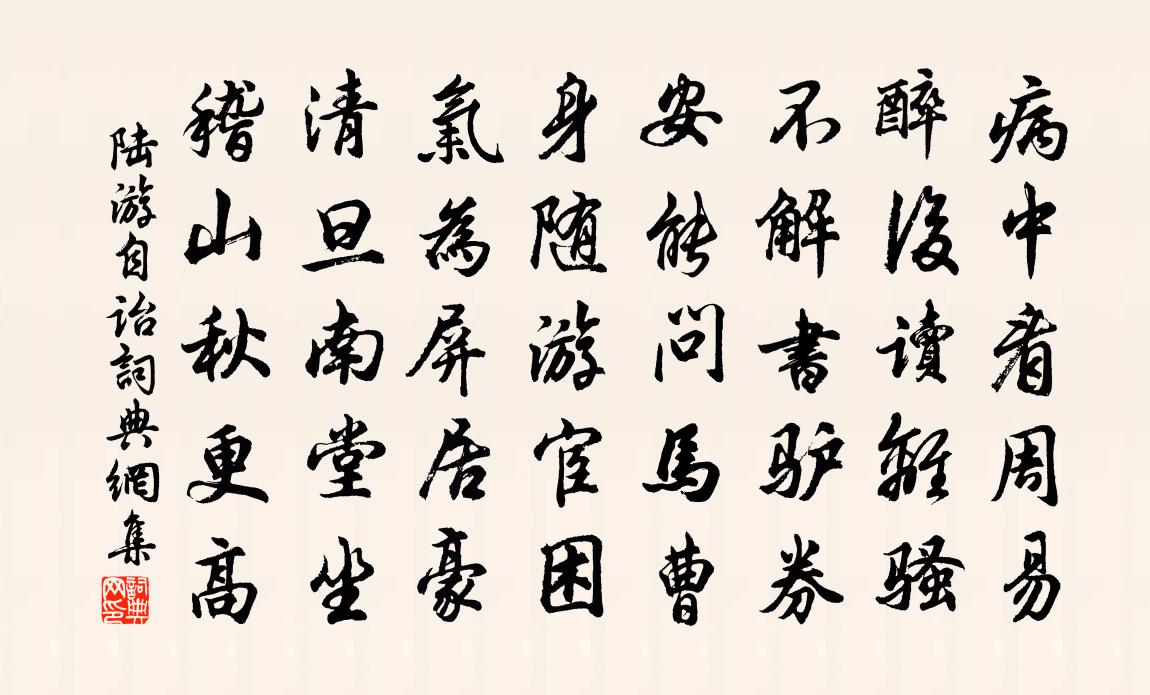 病中看周易
醉後读離骚
不解書驴券
安能問馬曹
身随游宦困
氣為屏居豪
清旦南堂坐
稽山秋更高
陆游自诒詞典網集
詞典网印